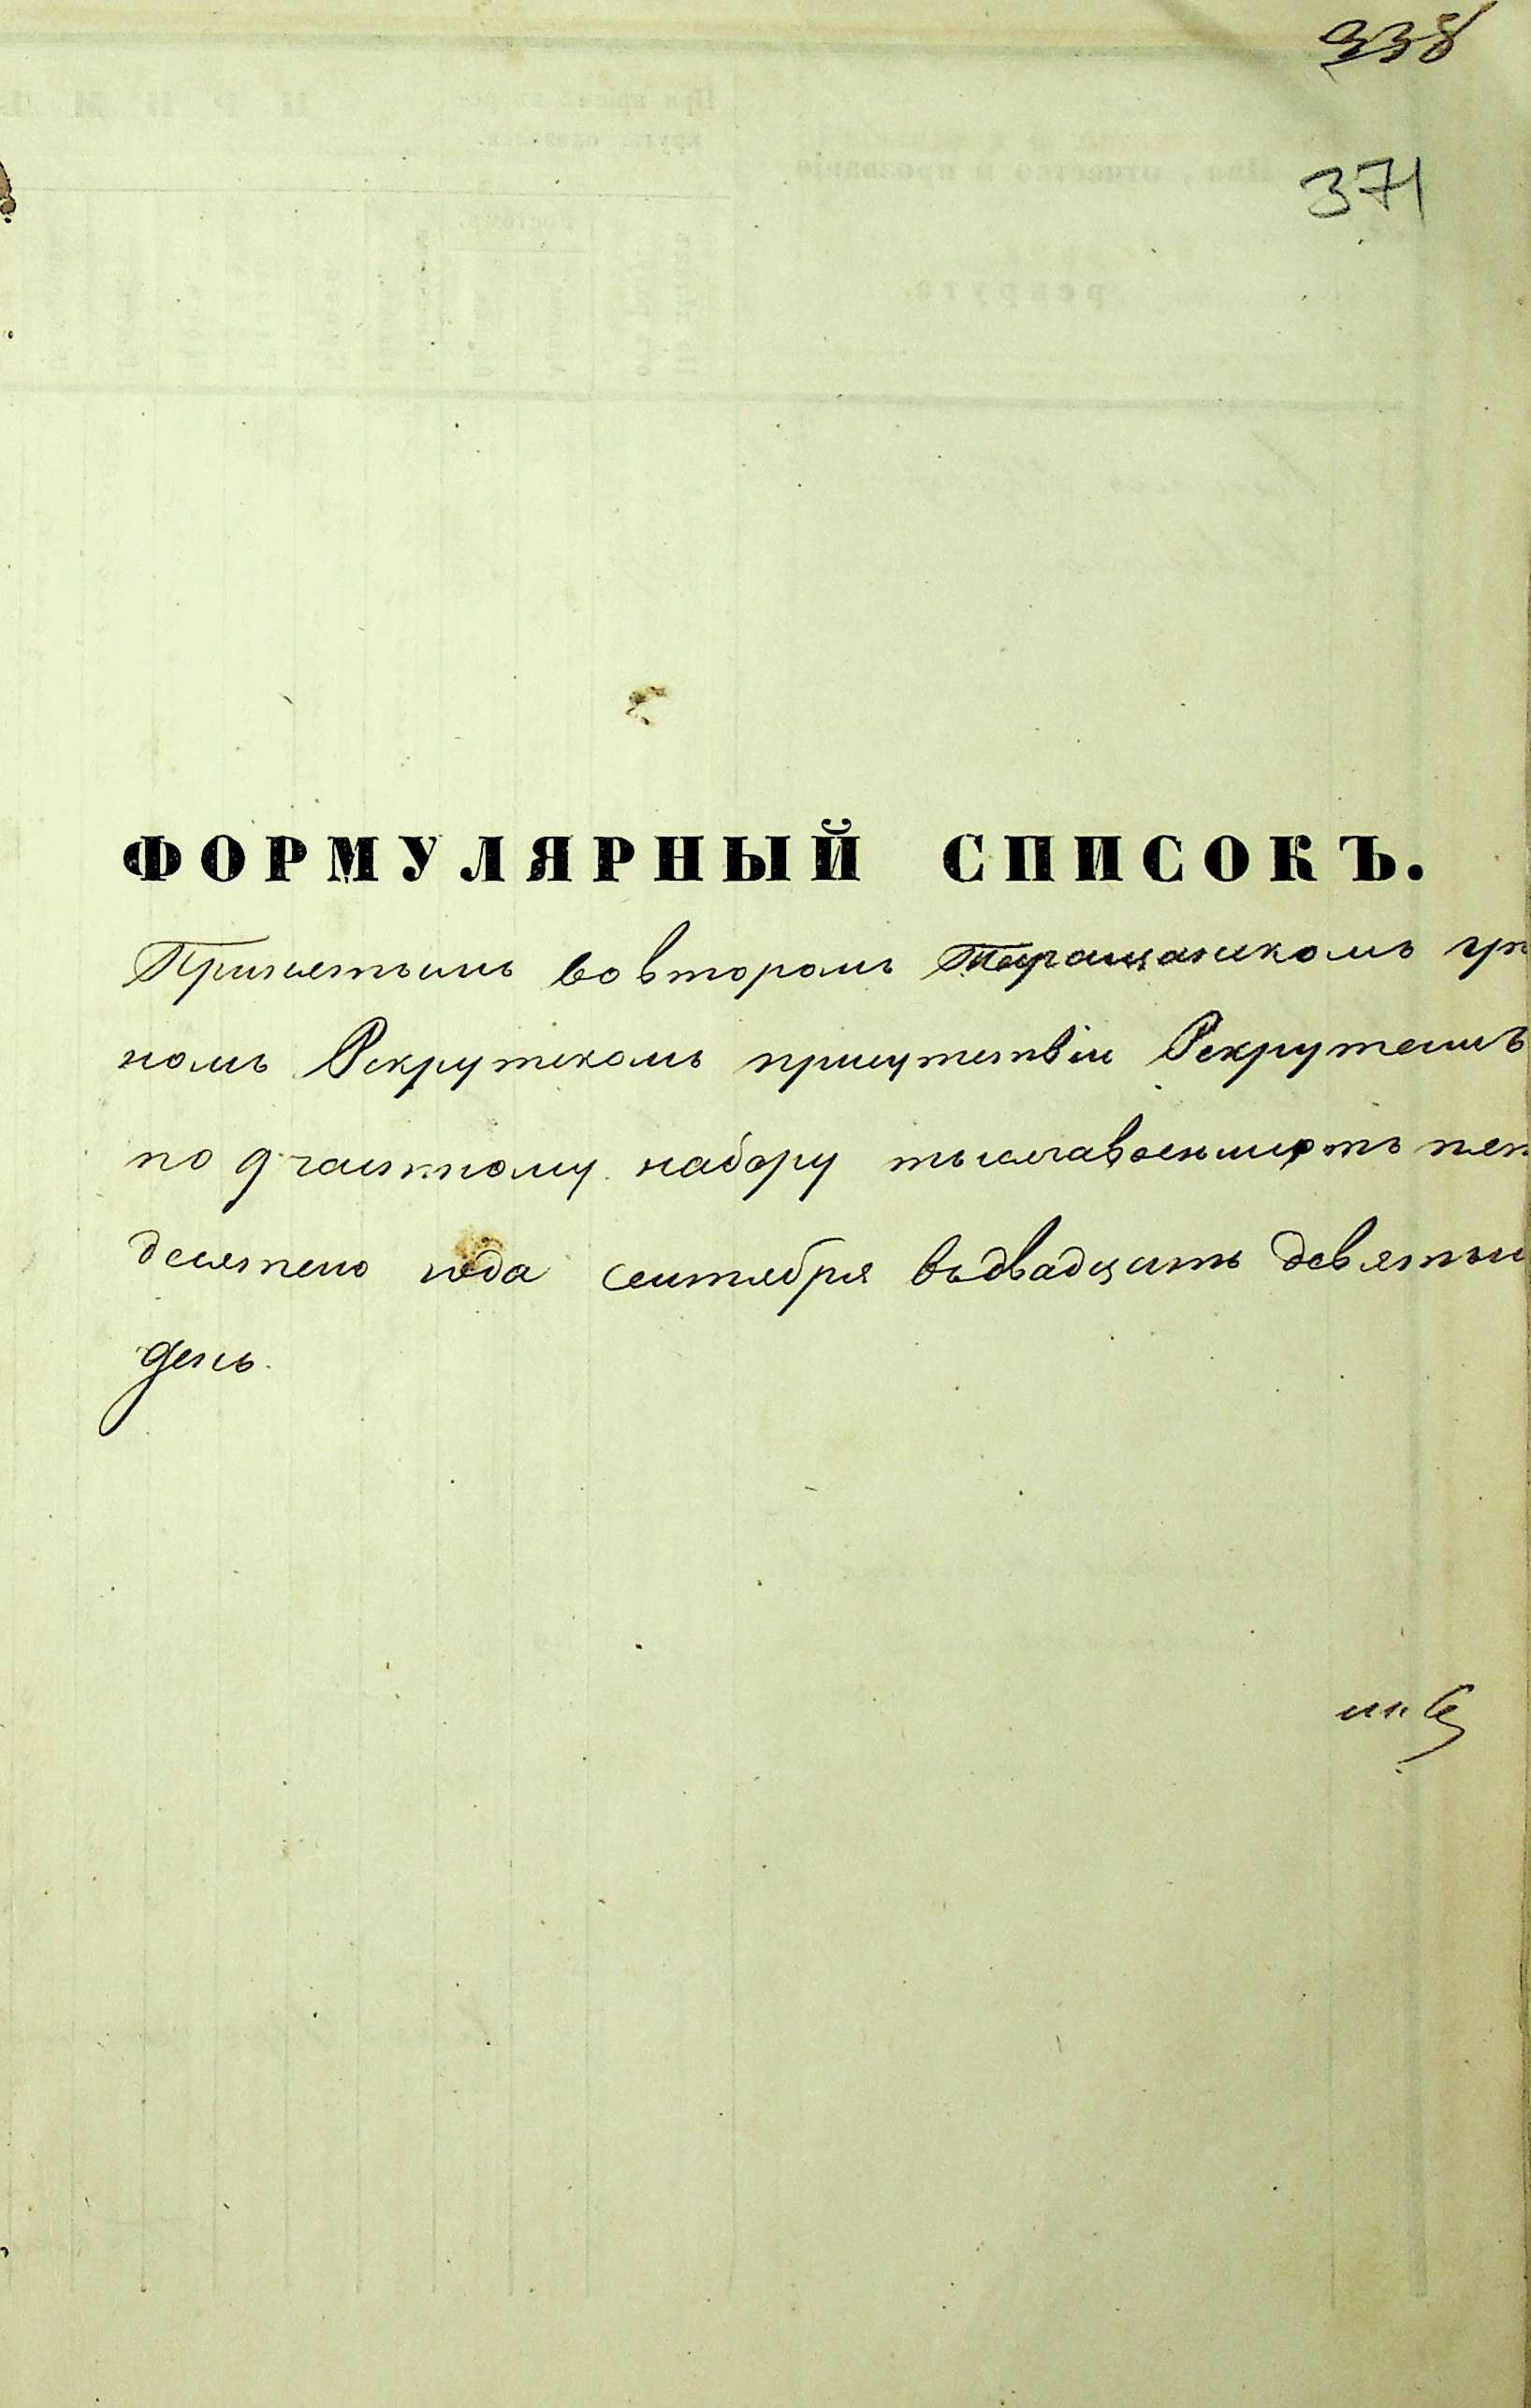 338
371
ФОРМУЛЯРНЫЙ СПИСОКЪ.
Принятымъ во второмъ Таращанскомъ
номъ Рекрутскомъ присутствіи Рекрутамъ
по 9 частному набору тысячавосемьсотъ пят
десятого года сентября въ двадцать девятый
день.